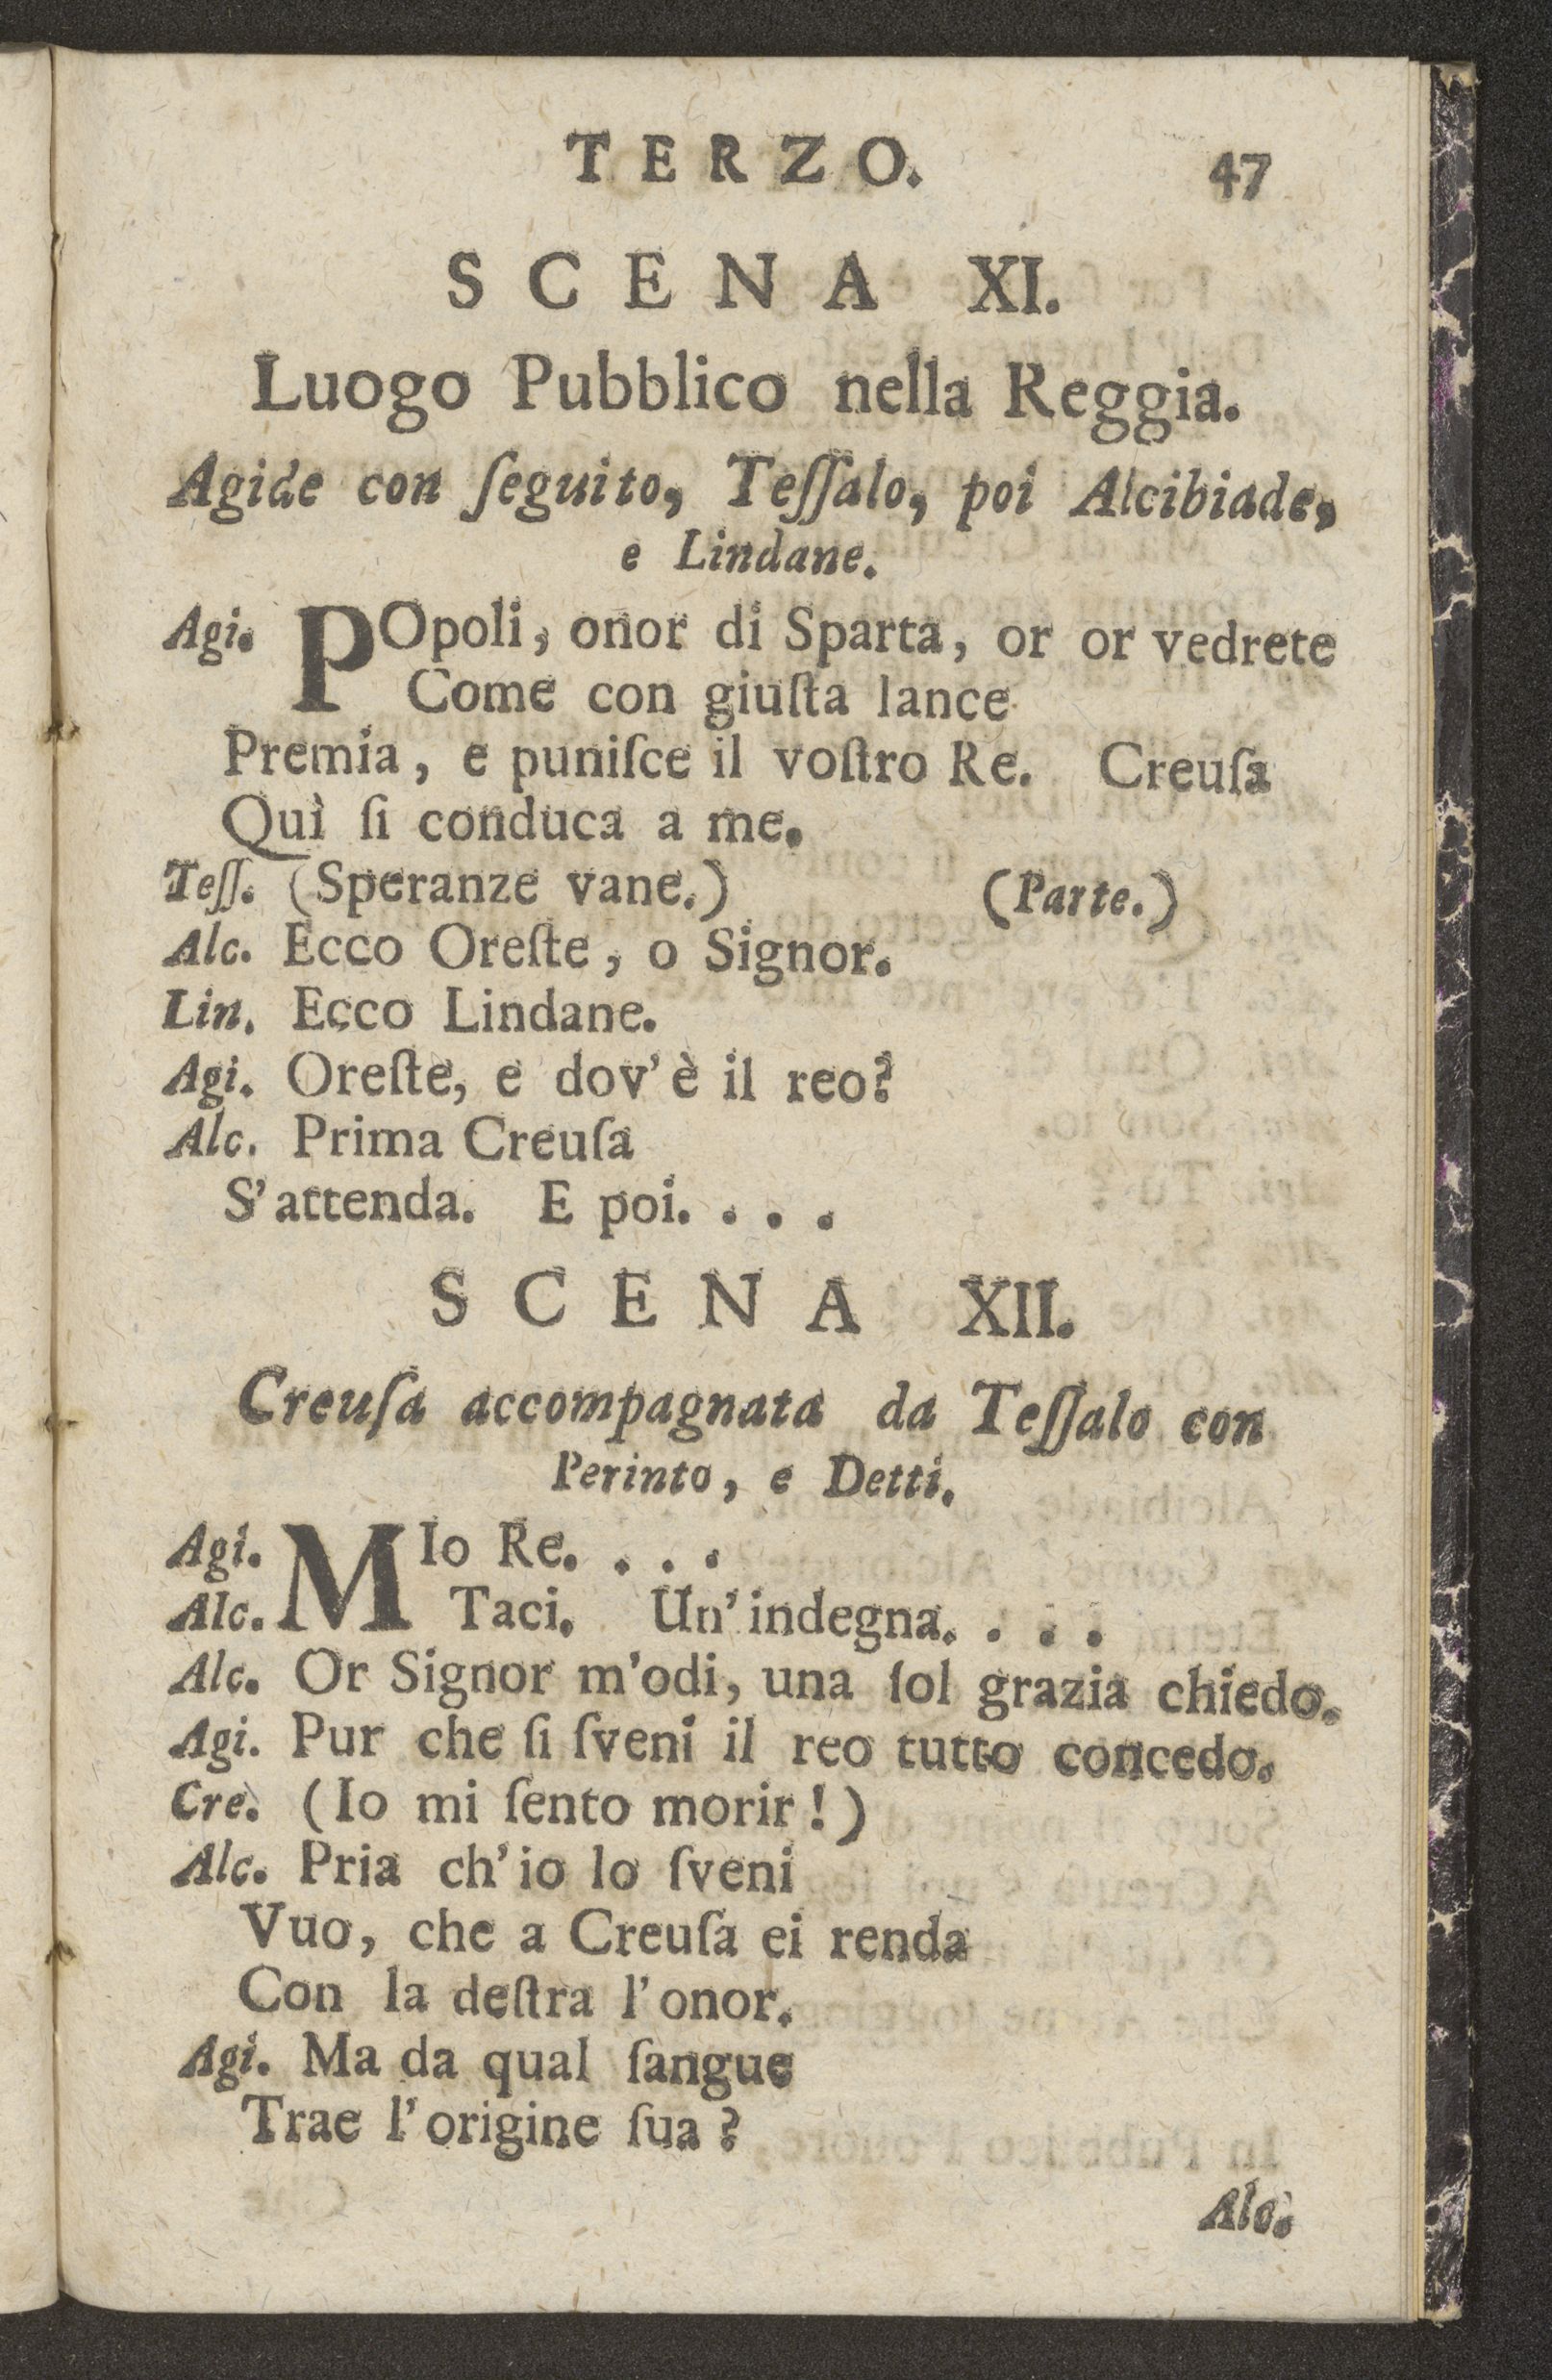 TERZO. 47
SCENA XI.
Luogo Pubblico nella Reggia.
Agide con ſeguito, Teſſalo, poi Alcibiade,
e Lindane.
Agi. POpoli, onor di Sparta, or or vedrete
Come con giuſta lance
Premia, e puniſce il voſtro Re. Creuſa
Quì ſi conduca a me.
Teſſ. (Speranze vane.) (Parte.)
Alc. Ecco Oreſte, o Signor.
Lin. Ecco Lindane.
Agi. Oreſte, e dov'è il reo?
Alc. Prima Creuſa
S'attenda. E poi. . . .
SCENA XII.
Creuſa accompagnata da Teſſalo con
Perinto, e Detti.
Agi. MIo Re. . . .
Alc. Taci. Un'indegna. . . .
Alc. Or Signor m'odi, una ſol grazia chiedo.
Agi. Pur che ſi ſveni il reo tutto concedo.
Cre. (Io mi ſento morir!)
Alc. Pria ch'io lo ſveni
Vuo, che a Creuſa ei renda
Con la deſtra l'onor.
Agi. Ma da qual ſangue
Trae l'origine ſua?
Alc.